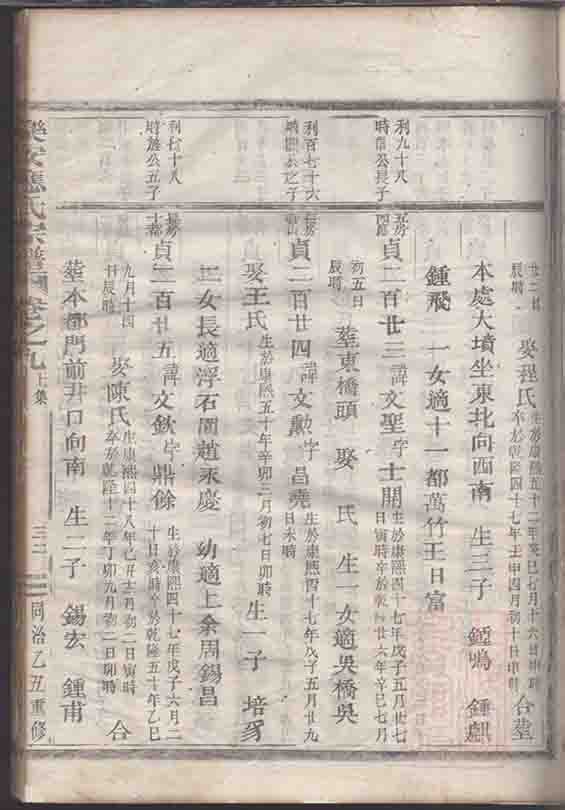 廿二日辰時 娶程氏 生於康熙五十二年癸巳七月十六日申時卒於乾隆四十七年壬寅四月初十日申時 合塟
本處大墳坐東北向西南 生三子 鍾鳴 鍾麒
鍾飛 一女適十一都萬竹王日富
利九十八時 公長子
貞二百廿三 諱文聖字士開 生於康熙四十七年戊子五月廿七日寅時卒於乾隆廿六年辛巳七月
初五日辰時 塟東橋頭 娶 氏 生一女適吳橋吳
利百七十六時 公之子
貞二百廿四 諱文勲字昌堯 生於康熙四十七年戊子五月廿九日未時
娶王氏 生於康熙五十年辛卯二月初七日卯時 生一子 培
二女長適浮石圃趙承慶 幼適上余周錫昌
利七十八時 公五子
長房十都 貞二百廿五 諱文欽字鼎餘 生於康熙四十七年戊子六月二十日亥時卒於乾隆五十年乙巳
九月十四日辰時 娶陳氏 生康熙四十八年己丑十月初二日寅時卒於乾隆十二年丁卯九月初二日卯時 合
塟本都門前井口向南 生二子 錫宏 鍾甫
氏宗譜 卷之九 上集 三二 同治乙丑重修